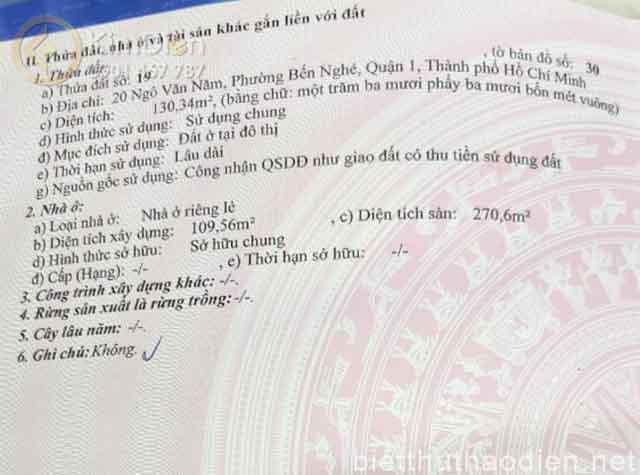 II. Thửa đất, nhà ở và tài sản khác gắn liền với đất
1. Thửa đất:
a) Thửa đất số: 19 , tờ bản đồ số: 30
b) Địa chỉ: 20 Ngô Văn Năm, Phường Bến Nghé, Quận 1, Thành phố Hồ Chí Minh
c) Diện tích: 130,34m², (bằng chữ: một trăm ba mươi phẩy ba mươi bốn mét vuông)
d) Hình thức sử dụng: Sử dụng chung
đ) Mục đích sử dụng: Đất ở tại đô thị
e) Thời hạn sử dụng: Lâu dài
g) Nguồn gốc sử dụng: Công nhận QSDĐ như giao đất có thu tiền sử dụng đất
2. Nhà ở:
a) Loại nhà ở: Nhà ở riêng lẻ
b) Diện tích xây dựng: 109,56m² , c) Diện tích sàn: 270,6m²
d) Hình thức sở hữu: Sở hữu chung
đ) Cấp (Hạng): -/- , e) Thời hạn sở hữu: -/-
3. Công trình xây dựng khác: -/-.
4. Rừng sản xuất là rừng trồng: -/-.
5. Cây lâu năm: -/-.
6. Ghi chú: Không.
bietthuthaodien.net